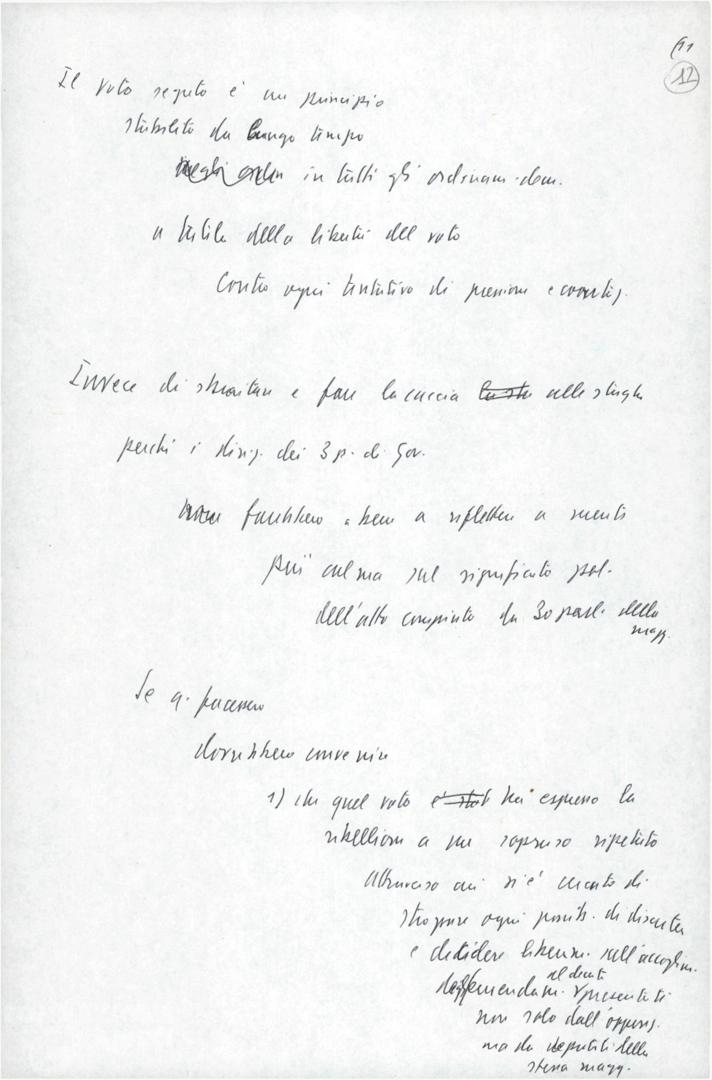 12
Il voto segreto è un principio
stabilito da lungo tempo
negli in tutti gli ordinam. dem.
a tutela della libertà del voto
contro ogni tentativo di pressione e
Invece di e fare la caccia alle streghe
perché i dirig. dei 3 p. di Gov.
non farebbero bene a riflettere a mente
più calma sul significato pol.
dell'atto compiuto da 30 parl. della
magg.
Se q. facessero
dovrebbero convenire
1) che quel voto è stat ha espresso la
ribellione a un sopruso ripetuto
attraverso cui si è cercato di
ogni possib. di discutere
e decidere liberam. sull'accoglim.
al decreto
emendam. presentati
non solo dall'oppos.
ma da deputati della
stessa magg.